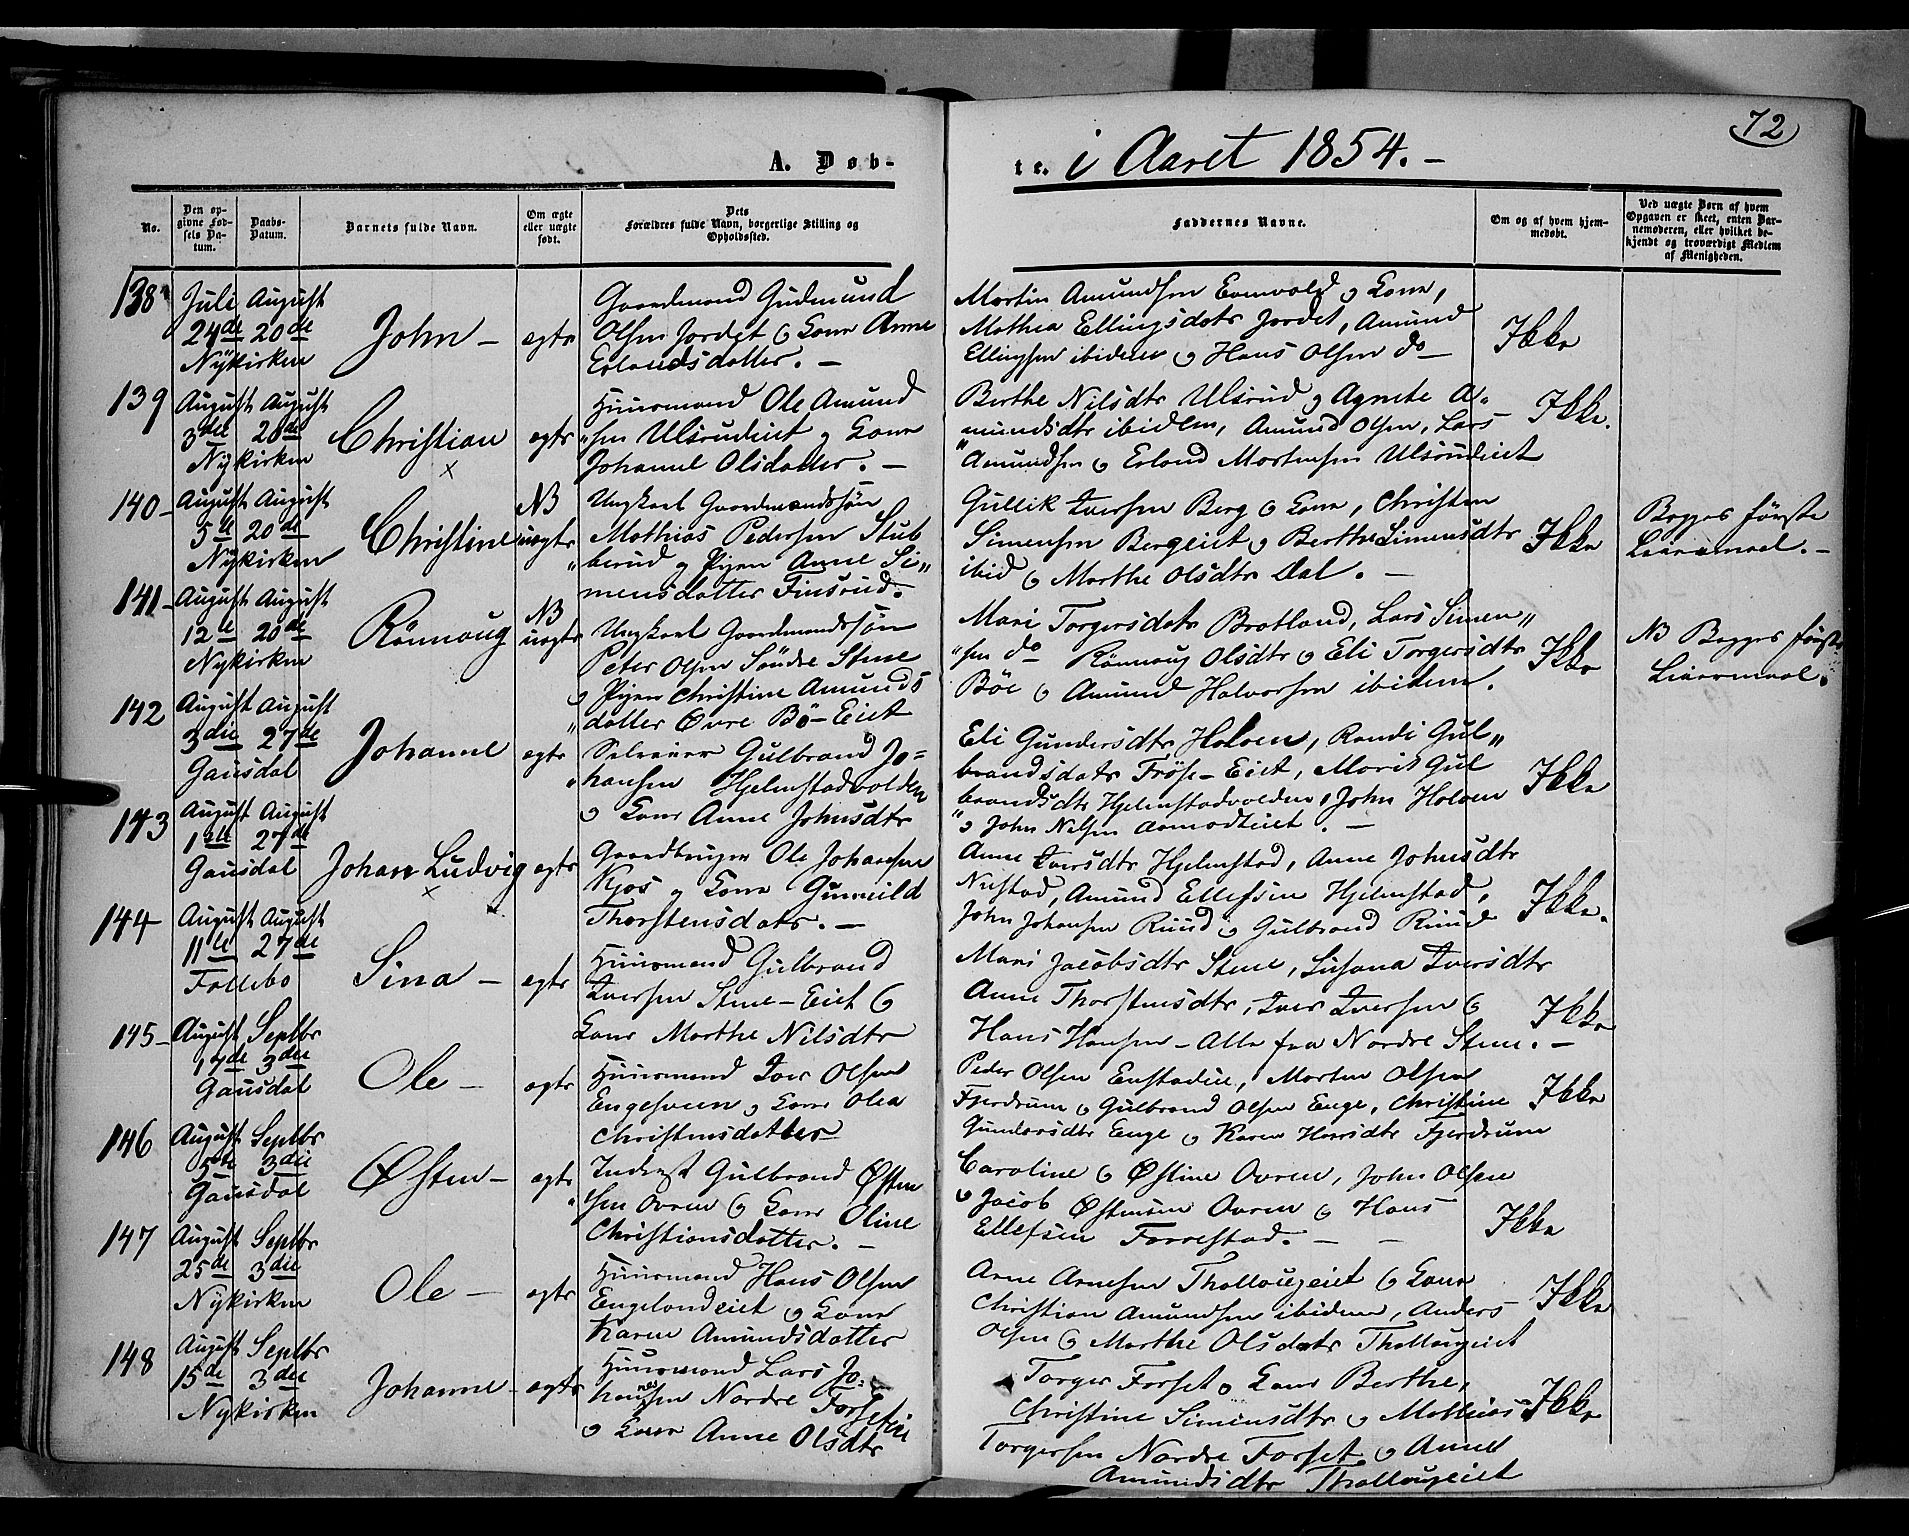 72
A. Døb-
te. i Aaret 1854.-
No.
Den op-
givne Fød-
sels Da-
tum.
Daabs-
Datum.
Barnets fulde Navn.
Om ægte
eller uægte
født.
Dets
Forældres fulde Navn, borgerlige Stilling og
Opholdssted.
Faddernes Navne.
Om og af hvem hjem-
medøbt.
Ved uægte Børn af hvem
Opgaven er skeet, enten Bar-
nemoderen, eller hvilket be-
kjendt og troværdigt Medlem
af Menigheden.
138
Juli August
24de 20de
Nykirken
John -
egte
Gaardmand Gudmund
Olsen Jordet & Kone Anne
Erlandsdatter. -
Martin Amundsen Evenvold & Kone,
Mathea Ellingsdatr Jordet, Amund
Ellingsen ibidem & Hans Olsen do
Ikke
139
August August
3die 20de
Nykirken
Christian
x
egte
Huusmand Ole Amund
"sen Ulsrudeiet & Kone
Johanne Olsdatter. -
Berthe Nilsdtr Ulsrud & Agnete A-
mundsdtr ibidem, Amund Olsen, Lars
"Amundsen & Erland Mortensen Ulsrudeiet
Ikke.
140-
August August
5te 20de
Nykirken
Christine
NB
uegte
Ungkarl Gaardmandssøn
Mathias Pedersen Stub
"berud & Pigen Anne Si"
mensdatter Finsrud.
Gullik Iversen Berg & Kone, Christen
Simensen Bergeiet & Berthe Simensdtr
ibid & Marthe Olsdtr Dal. -
Ikke
Begges første
Leiermaal. -
141-
August August
12te 20de
Nykirken
Rønnaug
NB
uegte
Ungkarl Gaardmandssøn
Peter Olsen Søndre Stene
& Pigen Christine Amunds
"datter Øvre Bø-Eiet
Mari Torgersdatr Bratland, Lars Simen"
"sen do Rønnaug Olsdtr & Eli Torgersdtr
Bøe & Amund Halvorsen ibidem.
Ikke
NB Begges første
Leiermaal.
142
August August
3die 27de
Gausdal
Johanne
egte
Selveier Gulbrand Jo-
"hansen Hjelmstadvolden
& Kone Anne Johnsdtr
Eli Gundersdtr Holven, Randi Gul"
brandsdatr Frøse-Eiet, Marit Gul
brandsdtr Hjelmstadvolden, John Holven
"& John Nilsen Aamodteiet. -
Ikke
143
August August
1ste 27de
Gausdal
Johan Ludvig
x
egte
Gaardbruger Ole Johansen
Kjos & Kone Gunnild
Thorstensdatr. -
Anne Iversdtr Hjelmstad, Anne Johnsdtr
Nustad, Amund Ellefsen Hjelmstad,
John Johansen Ruud & Gulbrand Ruud
Ikke.
144
August August
11te 27de
Follebo
Sina -
egte
Huusmand Gulbrand
Iversen Stene-Eiet &
Kone Marthe Nilsdtr
Mari Jacobsdtr Stene, Susana Iversdtr
Anne Thorstensdtr, Iver Iversen &
Hans Hansen - Alle fra Nordre Stene. -
Ikke
145-
August Septbr
17de 3die
Gausdal
Ole -
egte
Huusmand Iver Olsen
Engesveen & Kone Olea
Christensdatter
Peder Olsen Enstadeie, Morten Olsen
Fjerdrum & Gulbrand Olsen Enge, Christine
Gundersdtr Enge & Karen Hansdtr Fjerdrum
Ikke
146
August Septbr
5te 3die
Gausdal
Østen -
egte
Inderst Gulbrand Østen
"sen Ovren & Kone Oline
Christiansdatter. -
Caroline & Østine Ovren, John Olsen
& Jacob Østensen Ovren & Hans
Ellefsen Forrestad. - -
Ikke
147
August Septbr
25de 3die
Nykirken
Ole -
egte
Huusmand Hans Olsen
Engelandeiet & Kone
Karen Amundsdatter
Arne Arnesen Thallaugeiet & Kone
Christian Amundsen ibidem, Anders
Olsen & Marthe Olsdatr Thallaugeiet
Ikke
148
August Septbr
15de 3die
Nykirken
Johanne -
egte
Huusmand Lars Jo-
hannessen Nordre Forseteie
& Kone Anne Olsdtr
Torger Forset & Kone Berthe,
Christine Simensdtr & Mathias
Torgersen Nordre Forset & Anne
Amundsdtr Thallaugeiet
Ikke